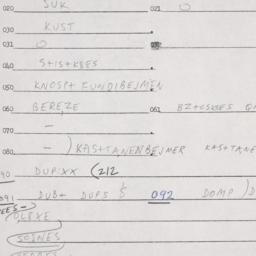 020. SUK 021 O
030 KUST
031 O
040 S+IS+KBES
050 KNOSP+ FUNDIBEJMEN
060 BEREZE 061 BZ+CSKBES
070 –
080 – ) KAS+TANENBEJMER KAS+TANE
90 DUP:XX (212
091 DUB+ DUPS 092 DOMP )D
OLEXE
SOSNES